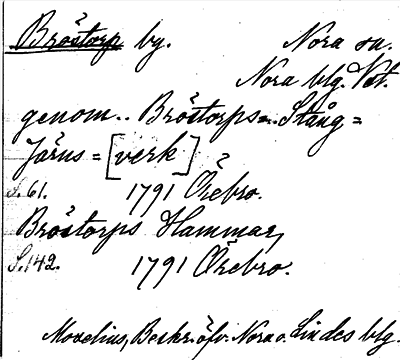 Bröstorp by. Nora sn.
Nora blg. Vst.
genom.. Bröstorps=Stång=
Järns=[verk]
S. 61. 1791 Örebro.
Bröstorps Hammar,
S. 142. 1791 Örebro.
Morelius, Beskr. öfv. Nora o. Lindes blg.